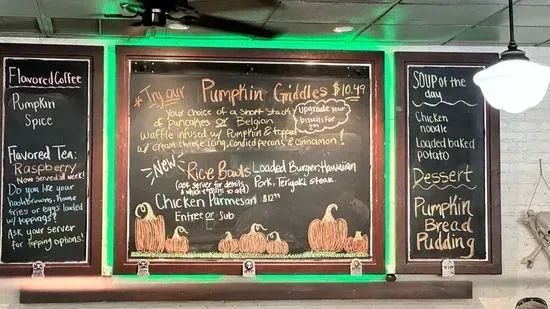 Flavored Coffee
Pumpkin
Spice
Flavored Tea:
Raspberry
Now served all week!
Do you like your
hashbrowns, home
fries or eggs loaded
w/ toppings?
Ask your server
for topping options!
Try our Pumpkin Griddles $10.49
Your choice of a short stack
of pancakes or Belgian
Waffle infused w/ Pumpkin & topped
w/ cream cheese icing, candied pecans & cinnamon!
upgrade your
for
New
Rice Bowls Loaded Burger, Hawaiian
(ask server for details Pork, Teriyaki steak
Chicken Parmesan $12.99
Entree or Sub
Soup of the
day
Chicken
noodle
Loaded baked
potato
Dessert
Pumpkin
Bread
Pudding